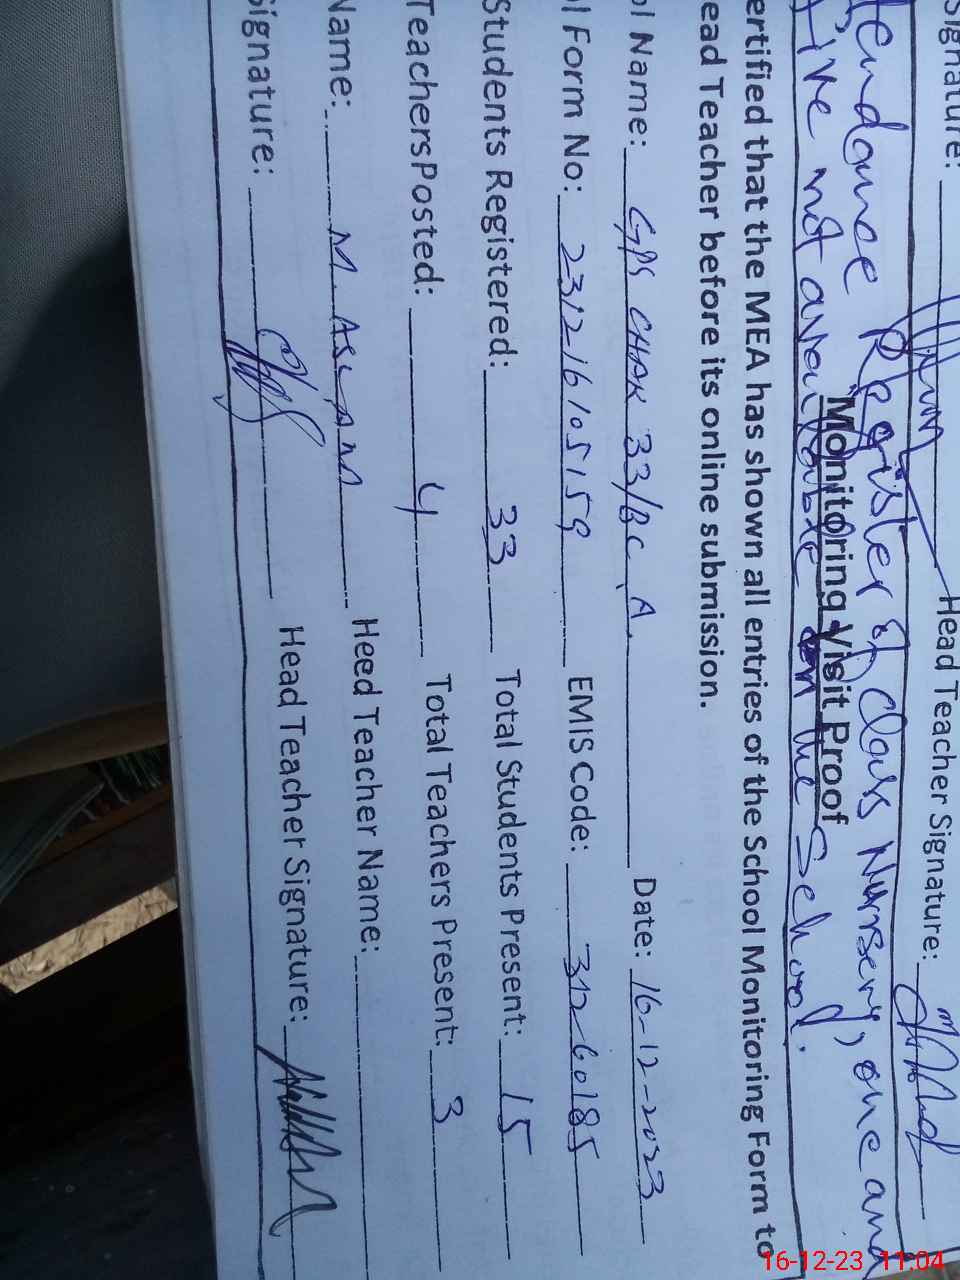 Signature: Head Teacher Signature:
tendance Register of class Nursery, one and
Five not available on the School.
Monitoring Visit Proof
ertified that the MEA has shown all entries of the School Monitoring Form to
ead Teacher before its online submission.
ol Name: GPS CHAK 33/BC A. Date: 16-12-2023
l Form No: 231216105159 EMIS Code: 31260185
Students Registered: 33 Total Students Present: 15
TeachersPosted: 4 Total Teachers Present: 3
Name: M. ASLAM Heed Teacher Name:
Signature: Head Teacher Signature:
16-12-23 11:04